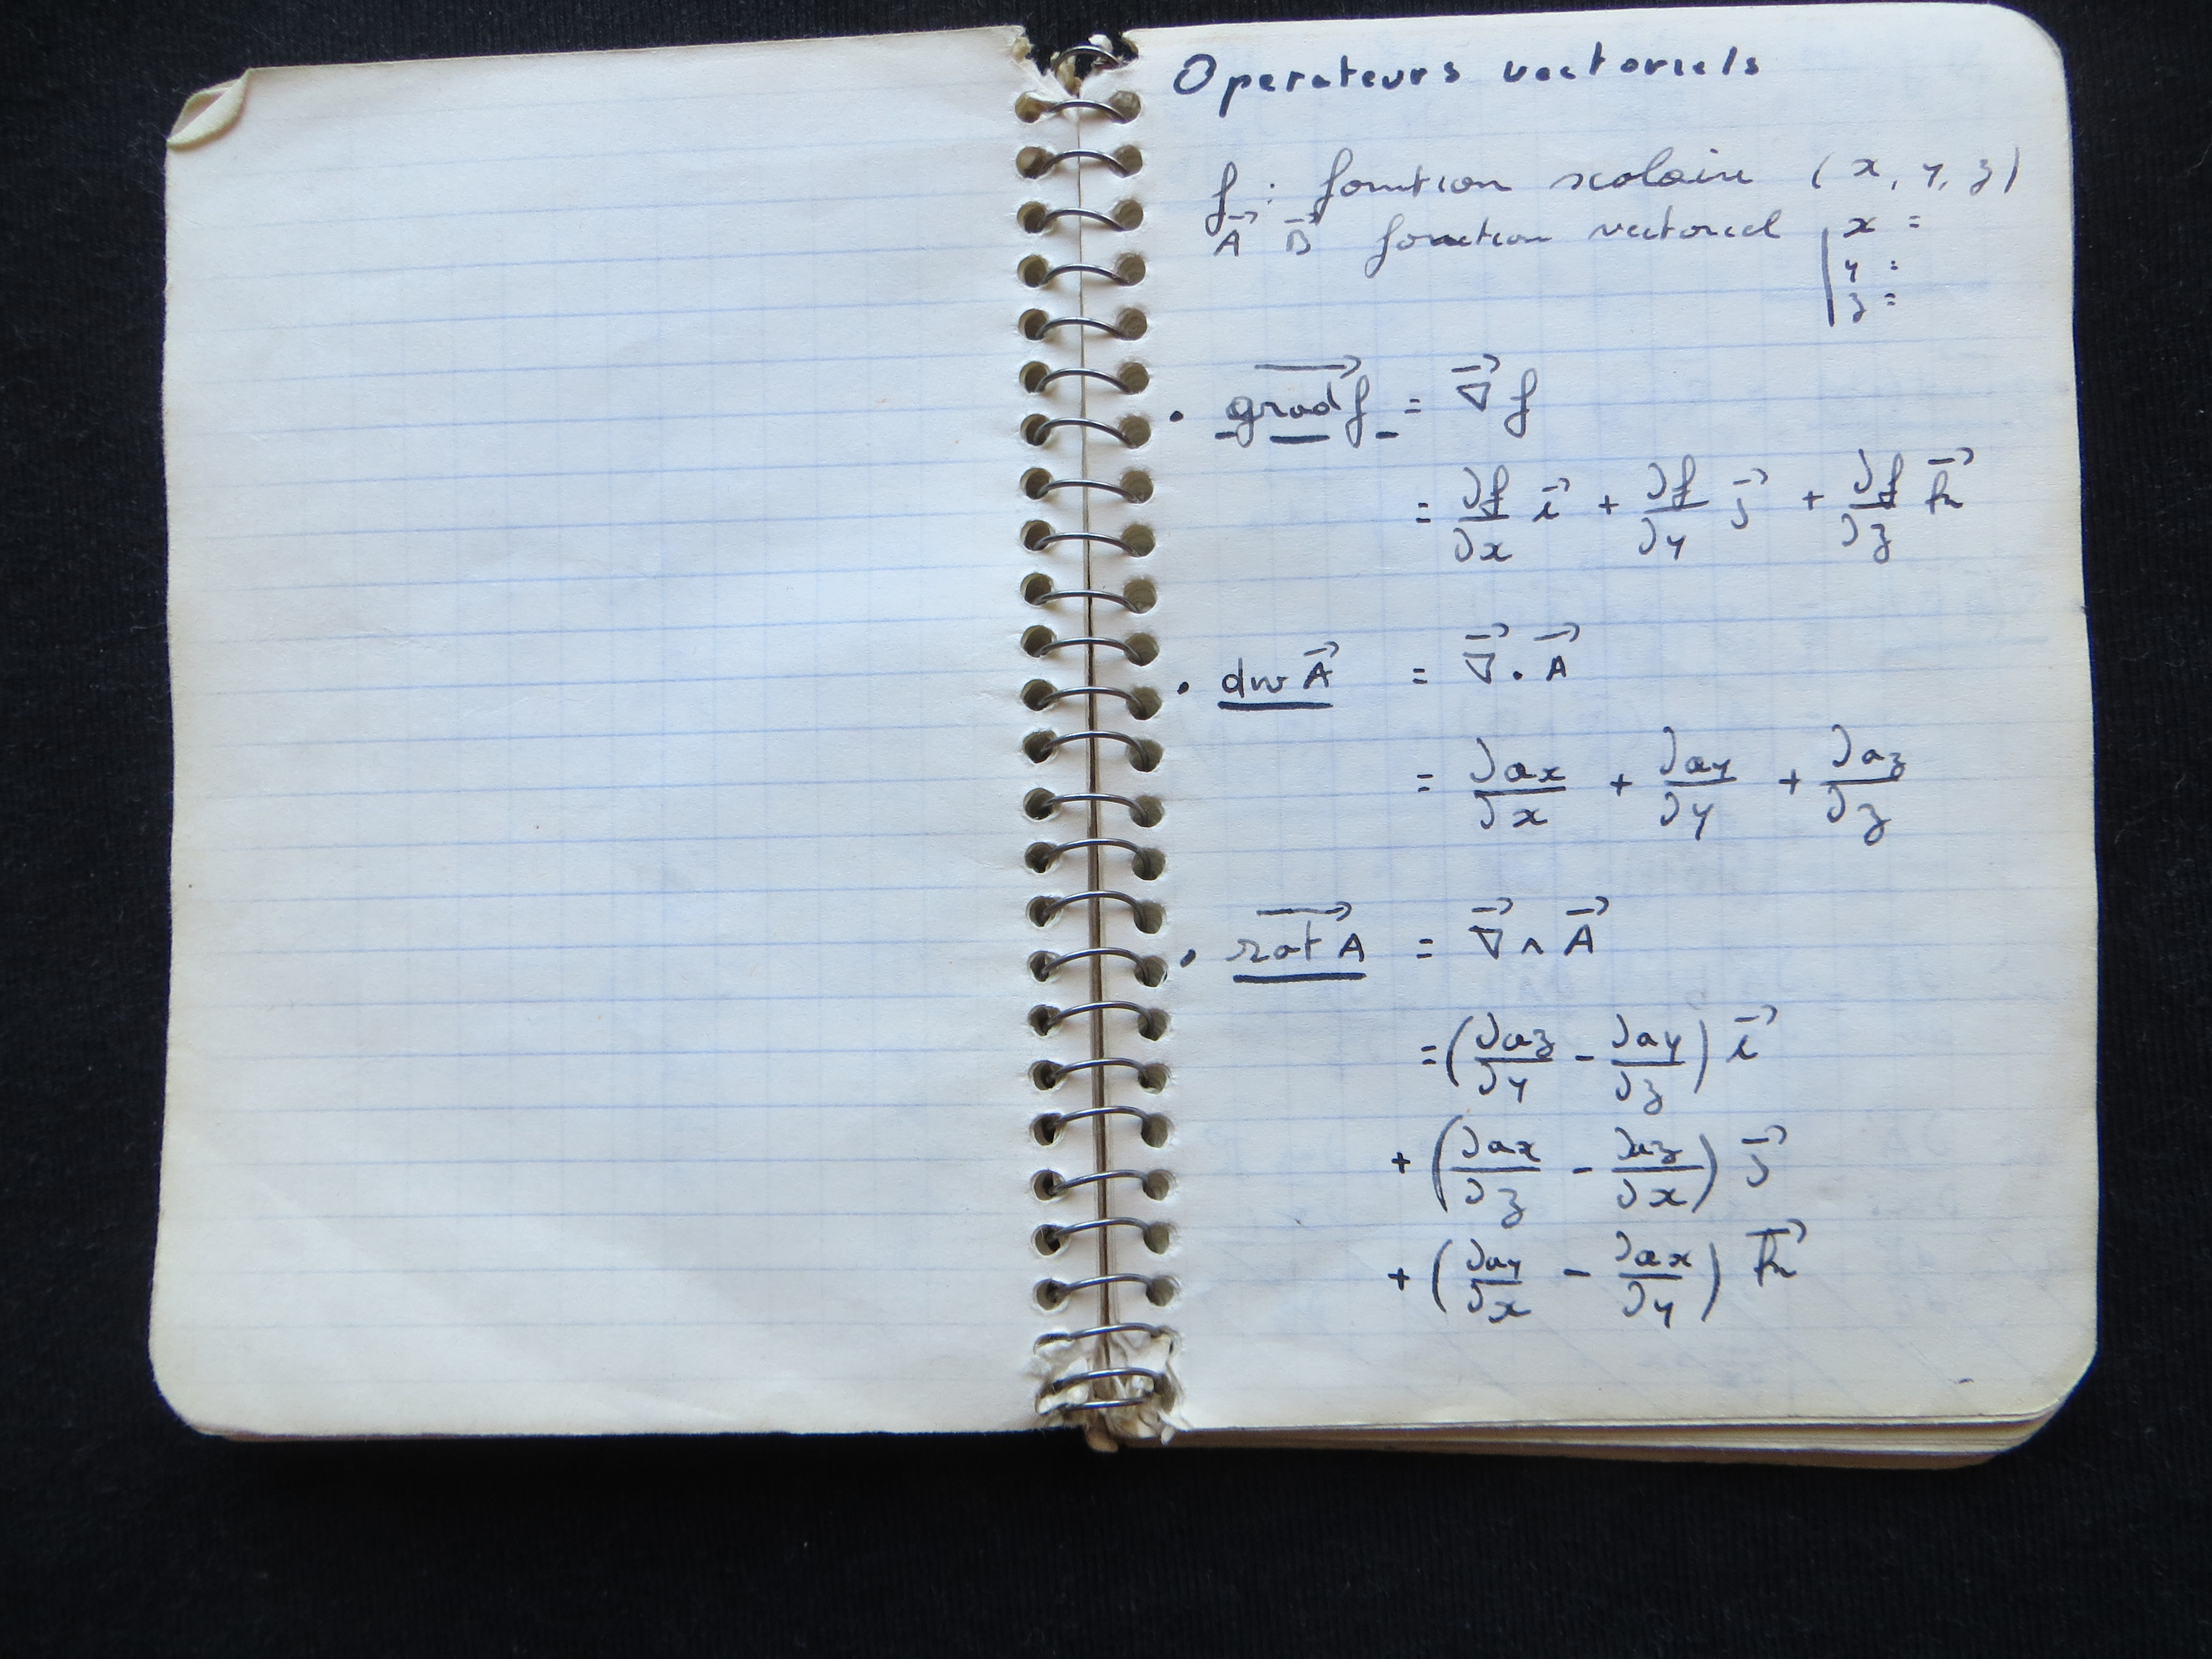 Operateurs vectoriels
f : fonction scalaire (x, y, z)
A⃗ B⃗ fonction vectoriel | x =
y =
z =
• grad⃗ f = ∇⃗ f
= ∂f/∂x i⃗ + ∂f/∂y j⃗ + ∂f/∂z k⃗
• div A⃗ = ∇⃗ . A⃗
= ∂ax/∂x + ∂ay/∂y + ∂az/∂z
• rot⃗ A = ∇⃗ ∧ A⃗
= (∂az/∂y - ∂ay/∂z) i⃗
+ (∂ax/∂z - ∂az/∂x) j⃗
+ (∂ay/∂x - ∂ax/∂y) k⃗